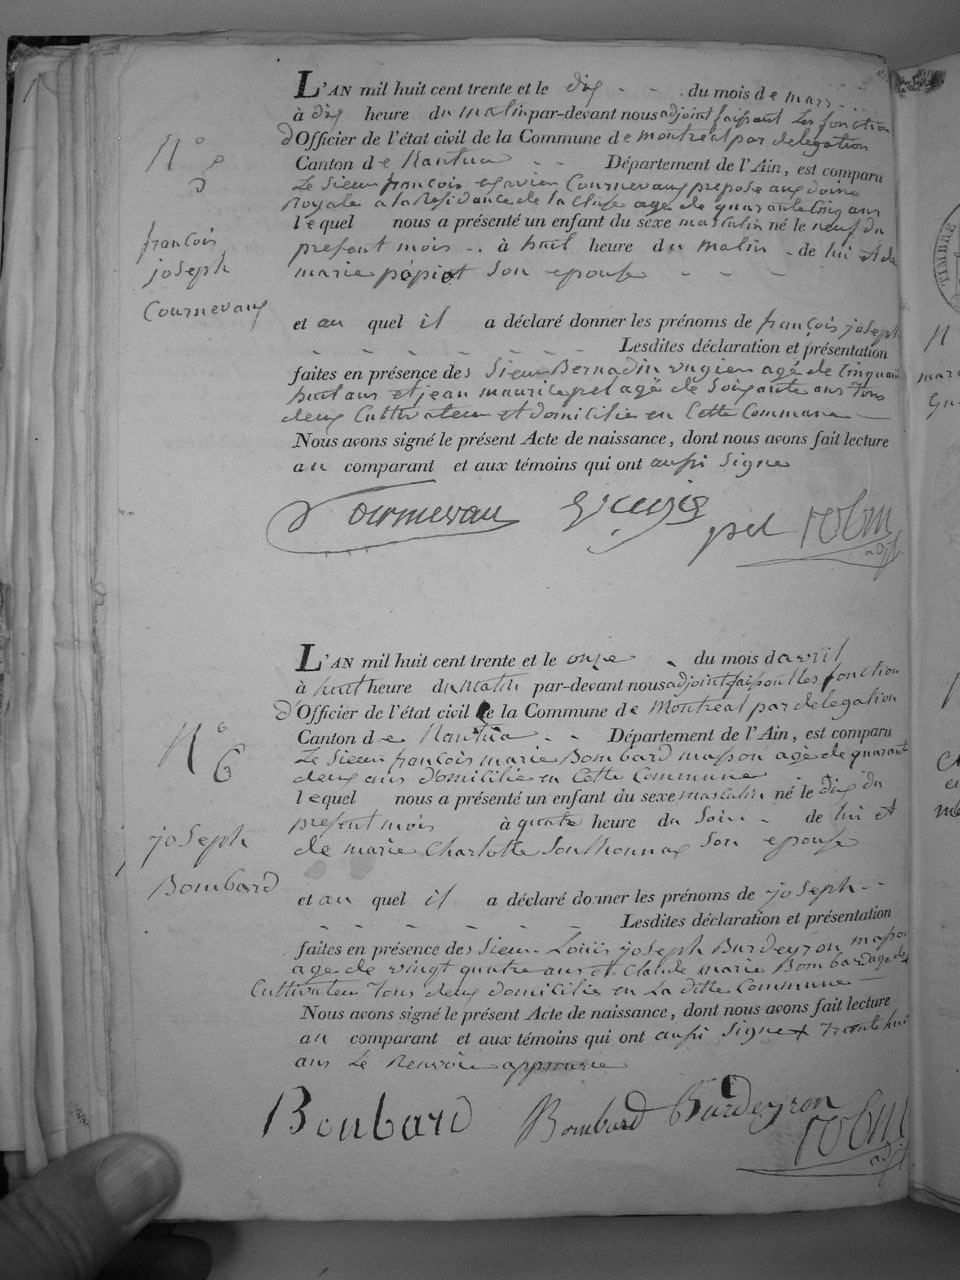 L'AN mil huit cent trente et le dix - - du mois de mars - -
à dix heure du matin par-devant nous adjoint faisant les fonction
d'Officier de l'état civil de la Commune de montreal par delegation
N°
5
Canton de Nantua - - Département de l'Ain, est comparu
Le Sieur françois Cournevaux prepose aux doine
Royale a la Residance de la Cluse agé de quarante Cinq ans
lequel nous a présenté un enfant du sexe masculin né le neuf du
present mois - - à huit heure du matin - de lui et de
marie pépiot Son epouse - - -
françois
joseph
Cournevaux
et au quel il a déclaré donner les prénoms de françois joseph
- - - - - - - Lesdites déclaration et présentation
faites en présence des Sieur Bernadin ugier agé de Cinquante
huit ans et jean maurice pel agé de Soixante ans Tous
deux Cultivateur et domicilie en Cette Commune
Nous avons signé le présent Acte de naissance, dont nous avons fait lecture
au comparant et aux témoins qui ont aussi Signe
Cournevau pel
adjt
L'AN mil huit cent trente et le onze - du mois d avril
à huit heure du Matin par-devant nous adjoint faisant les fonction
d'Officier de l'état civil de la Commune de Montreal par delegation
N°
6
Canton de Nantua - - Département de l'Ain, est comparu
Le Sieur françois marie Bombard masson agé de quarant
deux ans domicilie en Cette Commune
lequel nous a présenté un enfant du sexe masculin né le dix du
present mois à quatre heure du Soir - de lui et
de marie Charlotte Sonthonnax Son epouse
joseph
Bombard
et au quel il a déclaré donner les prénoms de joseph - -
- - - - - - - Lesdites déclaration et présentation
faites en présence des Sieur Louis joseph Burdeyron masson
age de vingt quatre ans et Claude marie Bombard age de x
Cultivateur Tous deux domicilie en La ditte Commune
Nous avons signé le présent Acte de naissance, dont nous avons fait lecture
au comparant et aux témoins qui ont aussi Signe x Trente huit
ans Le Renvoie approuve
Boubard Bombard Burdeyron
adjt
TIMBRE